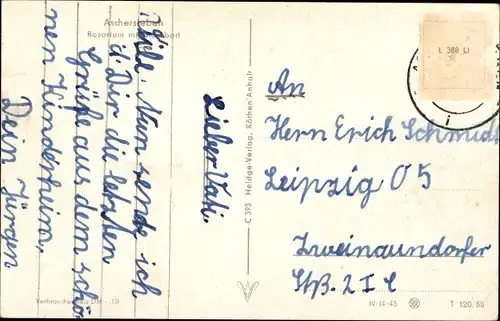 Aschersleben
Rosarium
Lieber Vati.
Nun sende ich
Dir die letzten
Grüße aus dem schö-
nen Kinderheim,
Dein Jürgen
Verbraucherpreis DM -.10
C 393 Heldge-Verlag, Köthen/Anhalt
L 388 LI
An
Herrn Erich Schmidt
Leipzig O5
Zweinaundorfer
Str. 2 I l
IV-14-45
T 120/56